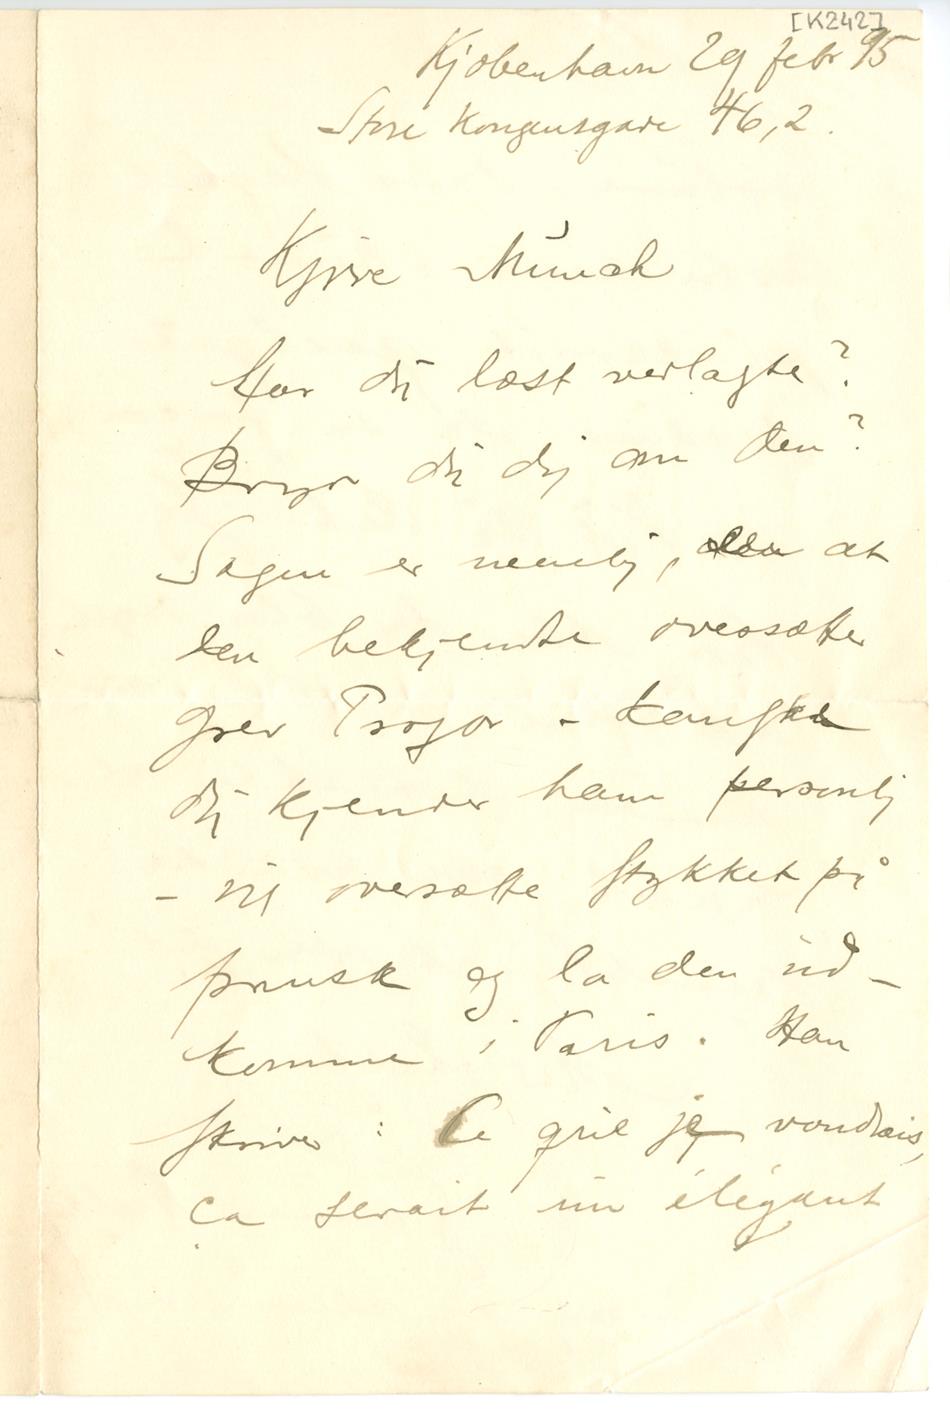 [K242]
Kjøbenhavn 29 febr 95
Store Kongensgade 46,2.
Kjære Munch
Har du læst vedlagte?
Bryr du dig om den?
Sagen er nemlig, den at
den bekjendte oversætter
grev Prozor – kanske
du kjender ham personlig
– vil oversætte stykket på
fransk og la den ud-
komme i Paris. Han
skriver: Ce que je voudrais,
ca serait un élégant